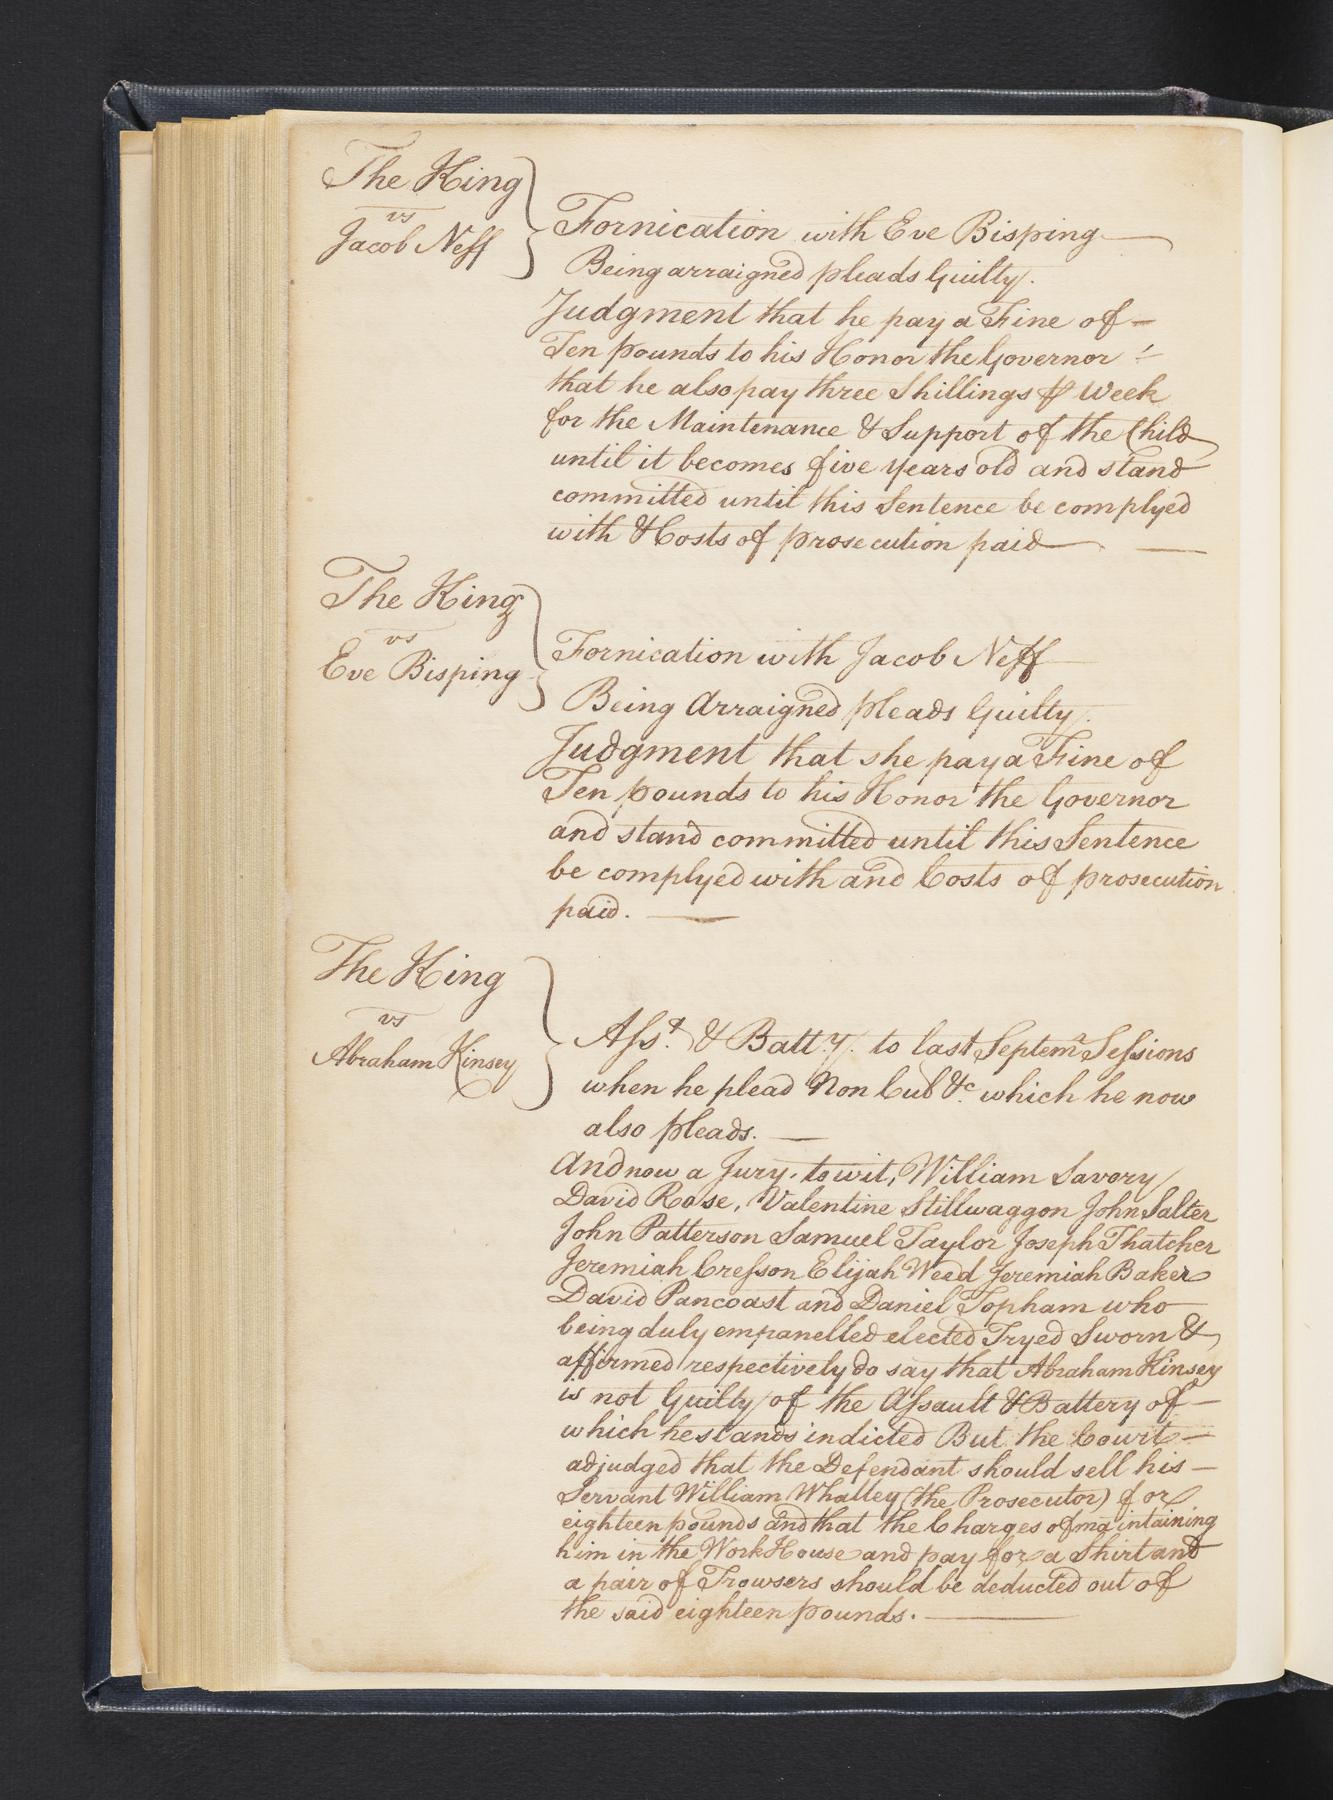 The King
vs
Jacob Neff
Fornication with Eve Bisping
Being arraigned pleads Guilty.
Judgment that he pay a Fine of
Ten pounds to his Honor the Governor
that he also pay three Shillings ⅌ Week
for the Maintenance & Support of the Child
until it becomes five years old and stand
committed until this Sentence be complyed
with & Costs of prosecution paid
The King
vs
Eve Bisping
Fornication with Jacob Neff
Being Arraigned pleads Guilty.
Judgment that she pay a Fine of
Ten pounds to his Honor the Governor
and stand committed until this Sentence
be complyed with and Costs of prosecution
paid.
The King
vs
Abraham Kinsey
Asst. & Batty. to last Septemr Sessions
when he plead Non Cul &c. which he now
also pleads.
And now a Jury, to wit, William Savory
David Rose, Valentine Stillwaggon John Salter
John Patterson Samuel Taylor Joseph Thatcher
Jeremiah Cresson Elijah Weed Jeremiah Baker
David Pancoast and Daniel Topham who
being duly empanelled elected Tryed Sworn &
affirmed respectively do say that Abraham Kinsey
is not Guilty of the Assault & Battery of
which he stands indicted But the Court
adjudged that the Defendant should sell his
Servant William Whalley (the Prosecutor) for
eighteen pounds and that the Charges of maintaining
him in the Work House and pay for a Shirt and
a pair of Trowsers should be deducted out of
the said eighteen pounds.